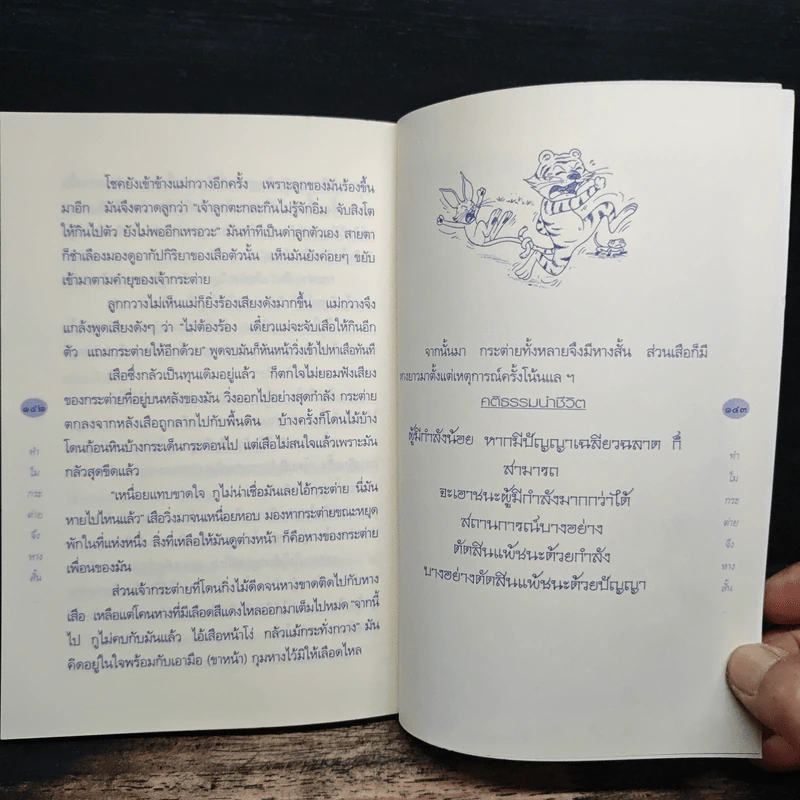 โชคยังเข้าข้างแม่กวางอีกครั้ง เพราะลูกของมันร้องขึ้น
มาอีก มันจึงตวาดลูกว่า "เจ้าลูกตะกละกินไม่รู้จักอิ่ม จับสิงโต
ให้กินไปตัว ยังไม่พออีกเหรอวะ" มันทำทีเป็นด่าลูกตัวเอง สายตา
ก็ชำเลืองมองดูอากัปกิริยาของเสือตัวนั้น เห็นมันยังค่อยๆ ขยับ
เข้ามาตามคำยุของเจ้ากระต่าย
ลูกกวางไม่เห็นแม่ก็ยิ่งร้องเสียงดังมากขึ้น แม่กวางจึง
แกล้งพูดเสียงดังๆ ว่า "ไม่ต้องร้อง เดี๋ยวแม่จะจับเสือให้กินอีก
ตัว แถมกระต่ายให้อีกด้วย" พูดจบมันก็หันหน้าวิ่งเข้าไปหาเสือทันที
เสือซึ่งกลัวเป็นทุนเดิมอยู่แล้ว ก็ตกใจไม่ยอมฟังเสียง
ของกระต่ายที่อยู่บนหลังของมัน วิ่งออกไปอย่างสุดกำลัง กระต่าย
ตกลงจากหลังเสือถูกลากไปกับพื้นดิน บ้างครั้งก็โดนไม้บ้าง
โดนก้อนหินบ้างกระเด็นกระดอนไป แต่เสือไม่สนใจแล้วเพราะมัน
กลัวสุดขีดแล้ว
"เหนื่อยแทบขาดใจ กูไม่น่าเชื่อมันเลยไอ้กระต่าย นี่มัน
หายไปไหนแล้ว" เสือวิ่งมาจนเหนื่อยหอบ มองหากระต่ายขณะหยุด
พักในที่แห่งหนึ่ง สิ่งที่เหลือให้มันดูต่างหน้า ก็คือหางของกระต่าย
เพื่อนของมัน
ส่วนเจ้ากระต่ายที่โดนกิ่งไม้ดีดจนหางขาดติดไปกับหาง
เสือ เหลือแต่โคนหางที่มีเลือดสีแดงไหลออกมาเต็มไปหมด "จากนี้
ไป กูไม่คบกับมันแล้ว ไอ้เสือหน้าโง่ กลัวแม้กระทั่งกวาง" มัน
คิดอยู่ในใจพร้อมกับเอามือ (ขาหน้า) กุมหางไว้มิให้เลือดไหล
๑๔๒
ทำ
ไม
กระ
ต่าย
จึง
หาง
สั้น
จากนั้นมา กระต่ายทั้งหลายจึงมีหางสั้น ส่วนเสือก็มี
หางยาวมาตั้งแต่เหตุการณ์ครั้งโน้นแล ฯ
คติธรรมนำชีวิต
ผู้มีกำลังน้อย หากมีปัญญาเฉลียวฉลาด ก็
สามารถ
จะเอาชนะผู้มีกำลังมากกว่าได้
สถานการณ์บางอย่าง
ตัดสินแพ้ชนะด้วยกำลัง
บางอย่างตัดสินแพ้ชนะด้วยปัญญา
๑๔๓
ทำ
ไม
กระ
ต่าย
จึง
หาง
สั้น